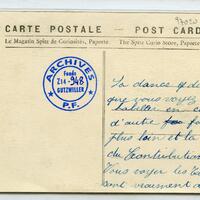 97020
CARTE POSTALE — POST CARD
Le Magasin Spitz de Curiosités, Papeete. The Spitz Curio Store, Papeete
ARCHIVES
Fonds
Z14-948
GUTZWILLER
P.F.
La danse
que vous voyez
habiller en
d'autre fo
plus loin et la
du Contribution
Vous voyer les
sont vraiment